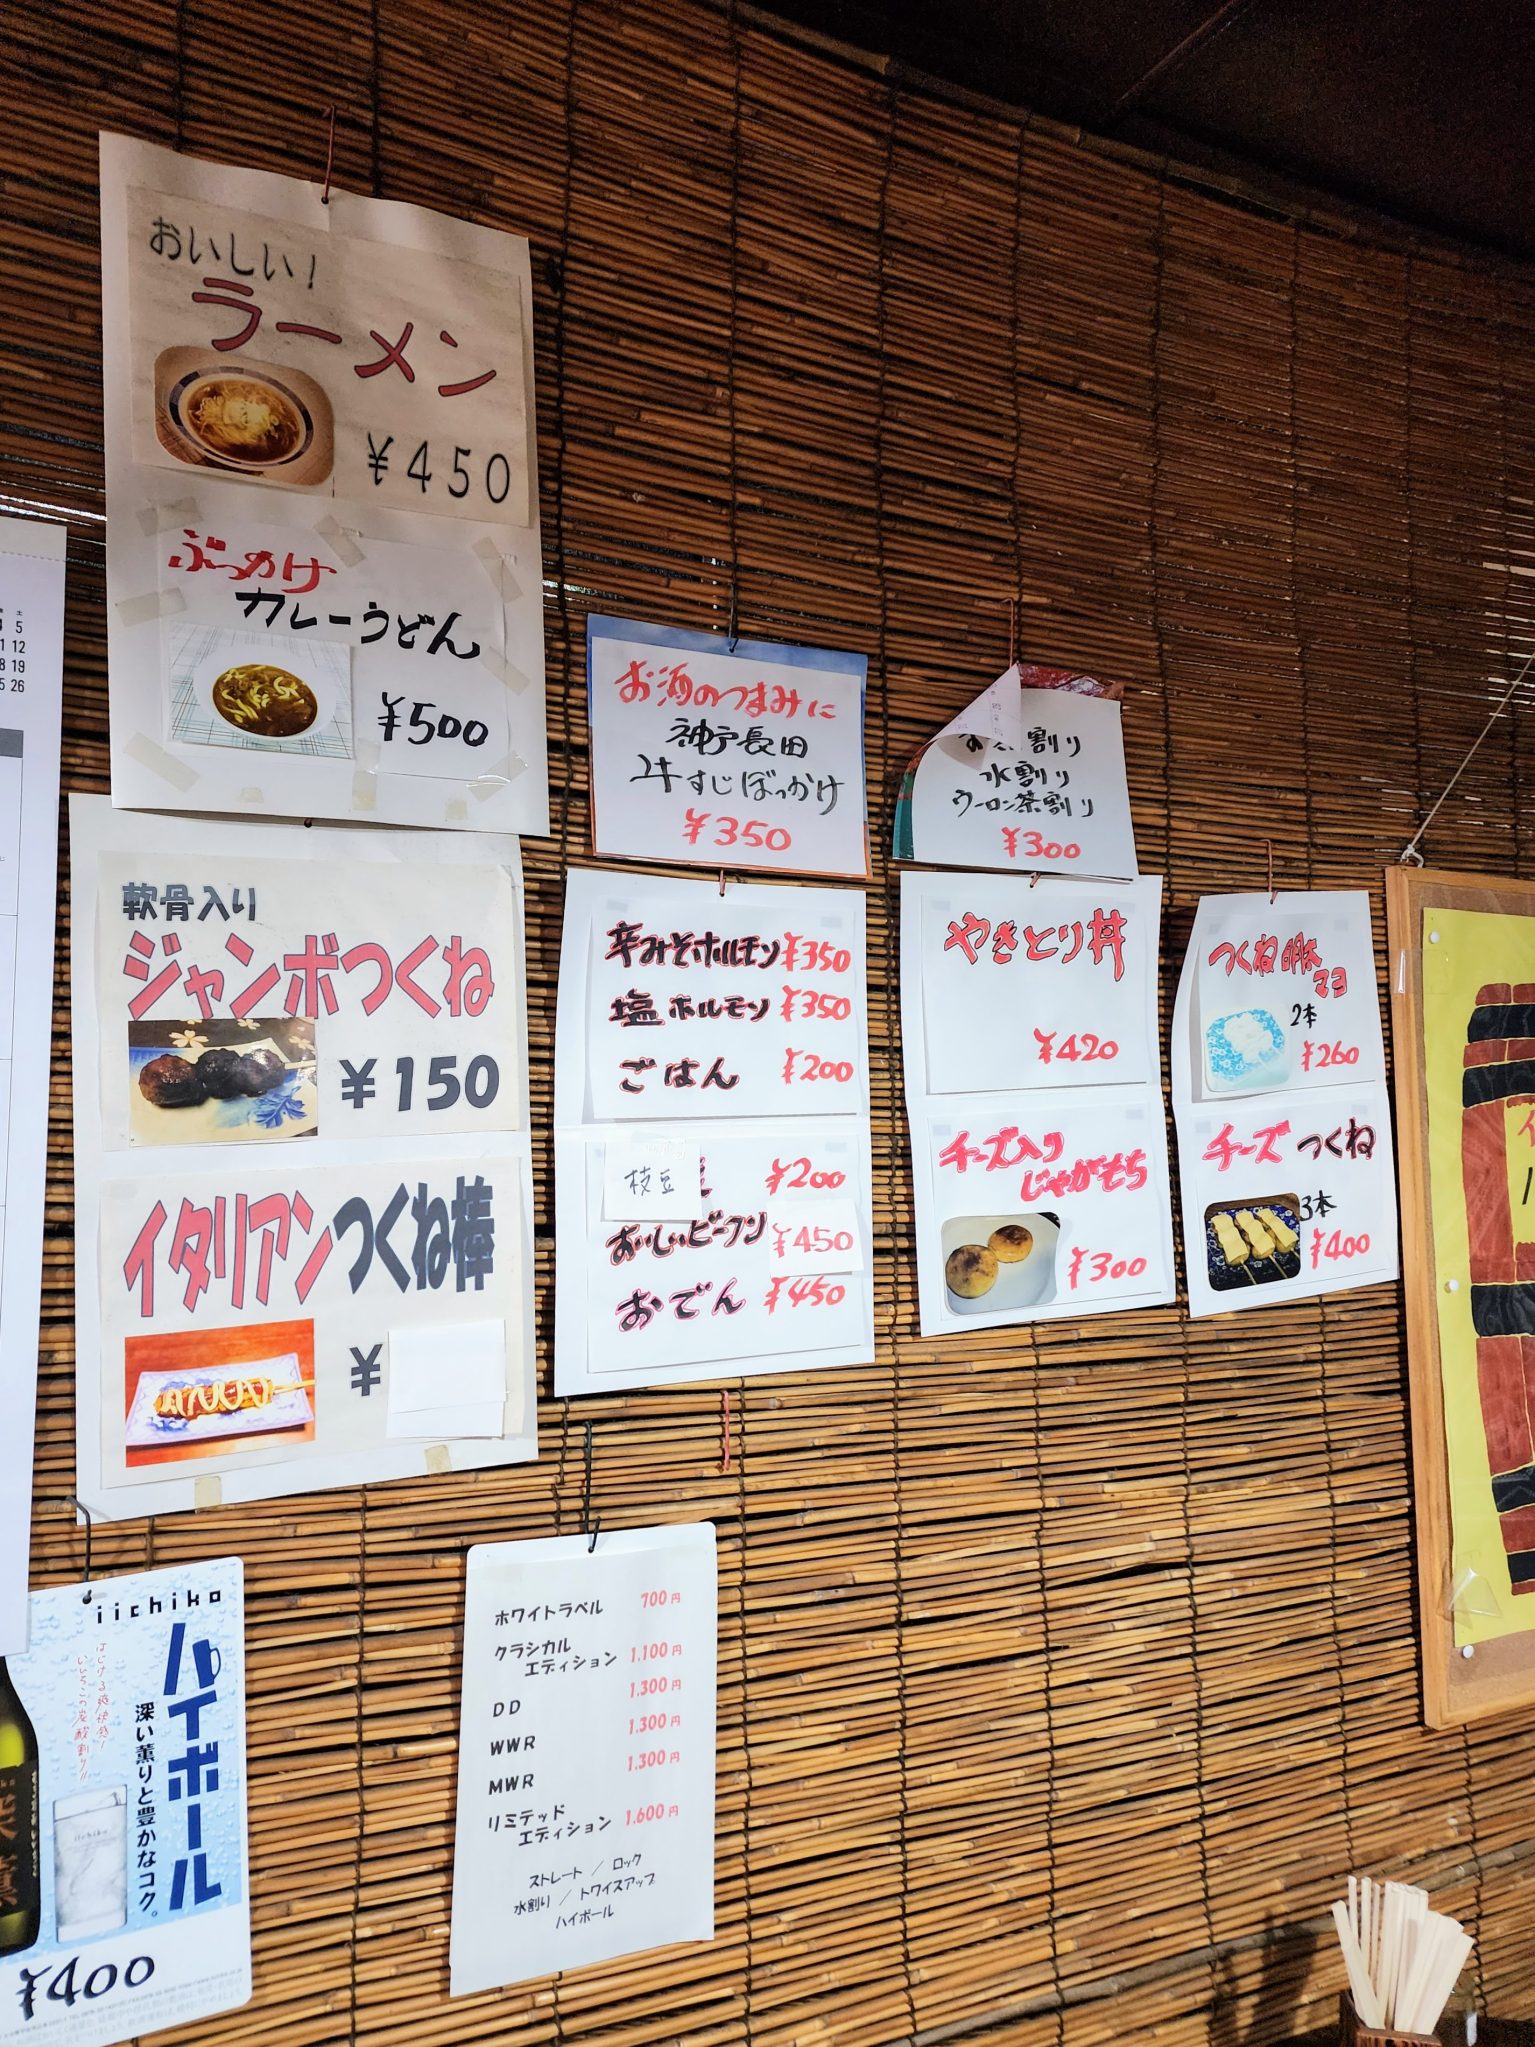 おいしい!
ラーメン
¥450
ぶっかけ
カレーうどん
¥500
土
5
12
19
26
軟骨入り
ジャンボつくね
¥150
イタリアンつくね棒
¥
お酒のつまみに
神戸長田
牛すじぼっかけ
¥350
割り
水割り
ウーロン茶割り
¥300
辛みそホルモン ¥350
塩ホルモン ¥350
ごはん ¥200
枝豆 ¥200
おいしいビーフン ¥450
おでん ¥450
やきとり丼
¥420
チーズ入り
じゃがもち
¥300
つくね明太
マヨ
2本
¥260
チーズつくね
3本
¥400
iichiko
ハイボール
深い薫りと豊かなコク。
はじける爽快感!
いいちこの炭酸割り!!
iichiko
¥400
ホワイトラベル 700円
クラシカル
エディション 1.100円
DD 1.300円
WWR 1.300円
MWR 1.300円
リミテッド
エディション 1.600円
ストレート / ロック
水割り / トワイスアップ
ハイボール